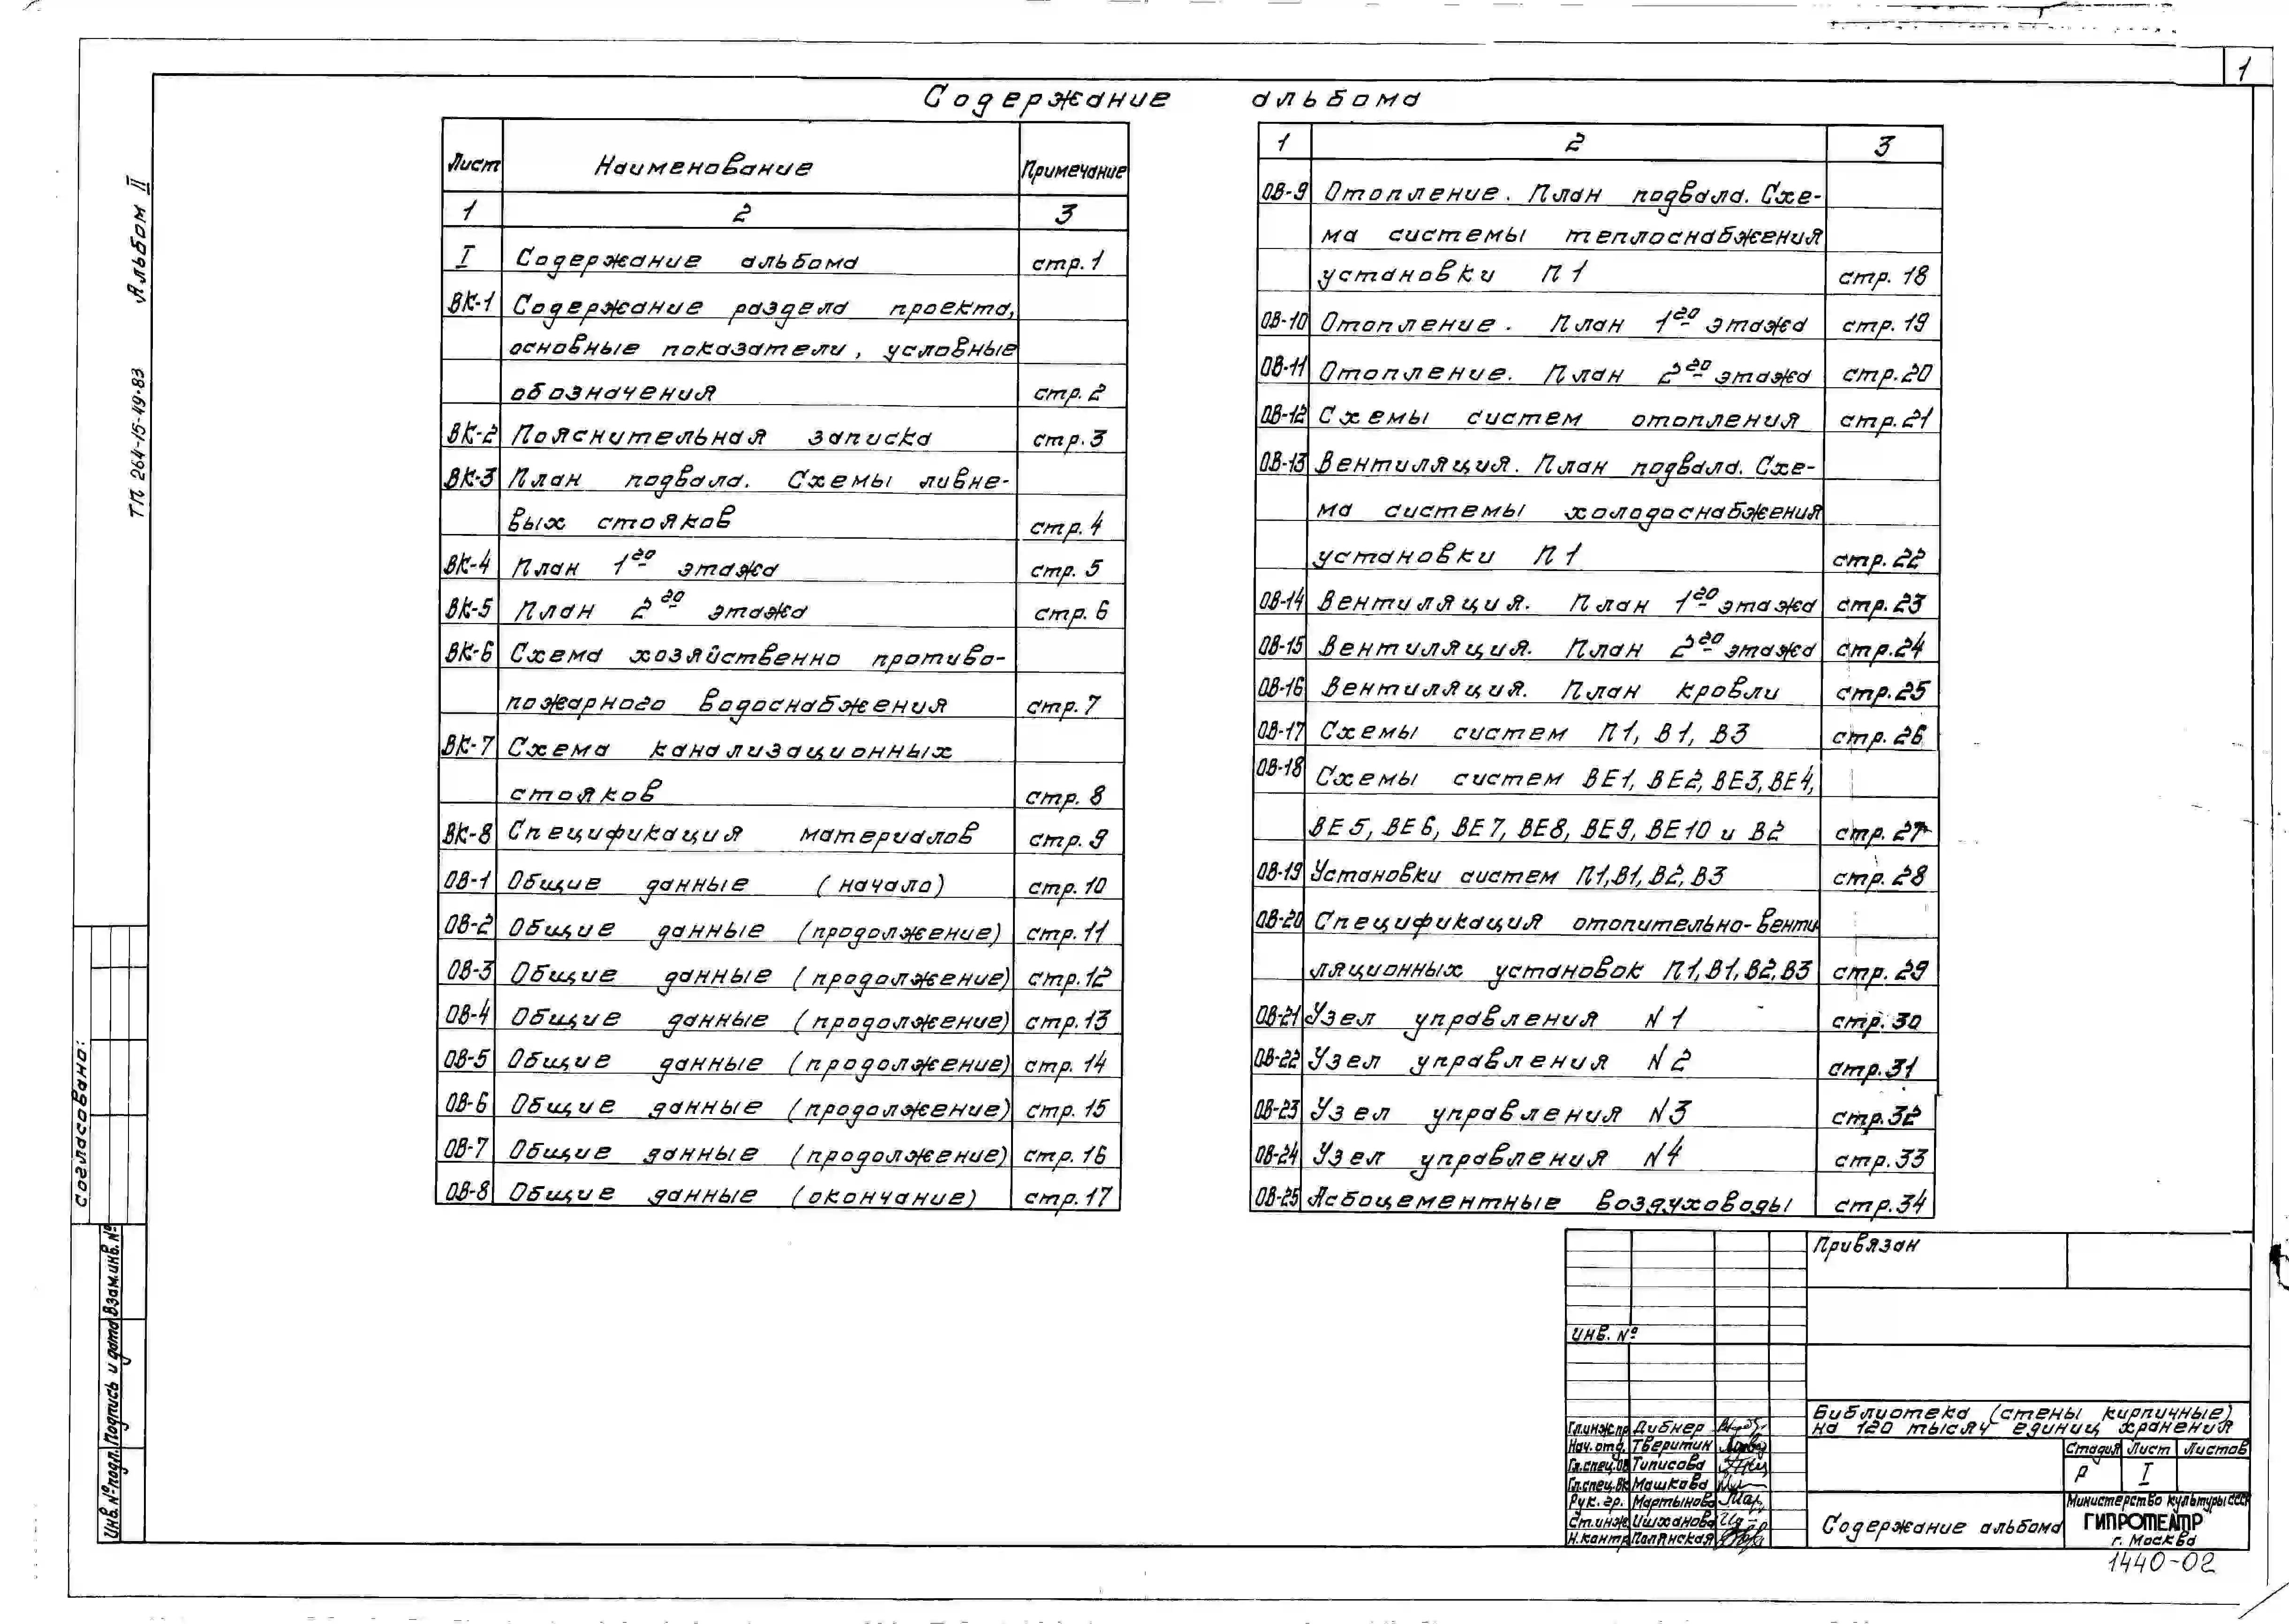 1
Содержание альбома
Лист Наименование Примечание
1 2 3
I Содержание альбома стр.1
ВК-1 Содержание раздела проекта,
основные показатели, условные
обозначения стр.2
ВК-2 Пояснительная записка стр.3
ВК-3 План подвала. Схемы ливне-
вых стояков стр.4
ВК-4 План 1го этажа стр. 5
ВК-5 План 2го этажа стр. 6
ВК-6 Схема хозяйственно противо-
пожарного водоснабжения стр. 7
ВК-7 Схема канализационных
стояков стр. 8
ВК-8 Спецификация материалов стр. 9
ОВ-1 Общие данные (начало) стр. 10
ОВ-2 Общие данные (продолжение) стр. 11
ОВ-3 Общие данные (продолжение) стр. 12
ОВ-4 Общие данные (продолжение) стр. 13
ОВ-5 Общие данные (продолжение) стр. 14
ОВ-6 Общие данные (продолжение) стр. 15
ОВ-7 Общие данные (продолжение) стр. 16
ОВ-8 Общие данные (окончание) стр. 17
1 2 3
ОВ-9 Отопление. План подвала. Схе-
ма системы теплоснабжения
установки П1 стр. 18
ОВ-10 Отопление. План 1го этажа стр. 19
ОВ-11 Отопление. План 2го этажа стр. 20
ОВ-12 Схемы систем отопления стр. 21
ОВ-13 Вентиляция. План подвала. Схе-
ма системы холодоснабжения
установки П1 стр. 22
ОВ-14 Вентиляция. План 1го этажа стр. 23
ОВ-15 Вентиляция. План 2го этажа стр. 24
ОВ-16 Вентиляция. План кровли стр. 25
ОВ-17 Схемы систем П1, В1, В3 стр. 26
ОВ-18 Схемы систем ВЕ1, ВЕ2, ВЕ3, ВЕ4,
ВЕ5, ВЕ6, ВЕ7, ВЕ8, ВЕ9, ВЕ10 и В2 стр. 27
ОВ-19 Установки систем П1, В1, В2, В3 стр. 28
ОВ-20 Спецификация отопительно-венти
ляционных установок П1, В1, В2, В3 стр. 29
ОВ-21 Узел управления N 1 стр. 30
ОВ-22 Узел управления N 2 стр. 31
ОВ-23 Узел управления N3 стр. 32
ОВ-24 Узел управления N4 стр. 33
ОВ-25 Асбоцементные воздуховоды стр. 34
ТП 264-15-49-83 Альбом II
Согласовано:
Инв. № подл. Подпись и дата Взам.инв. №
Привязан
Инв. №
Гл.инж.пр Дибнер
Нач. отд. Тверитин
Гл.спец.ОВ Типисова
Гл.спец.ВК Машкова
Рук. гр. Мартынова
Ст.инж. Ишханова
Н.контр Полянская
Библиотека (стены кирпичные)
на 120 тысяч единиц хранения
Стадия Лист Листов
Р I
Содержание альбома
Министерство культуры СССР
ГИПРОТЕАТР
г. Москва
1440-02